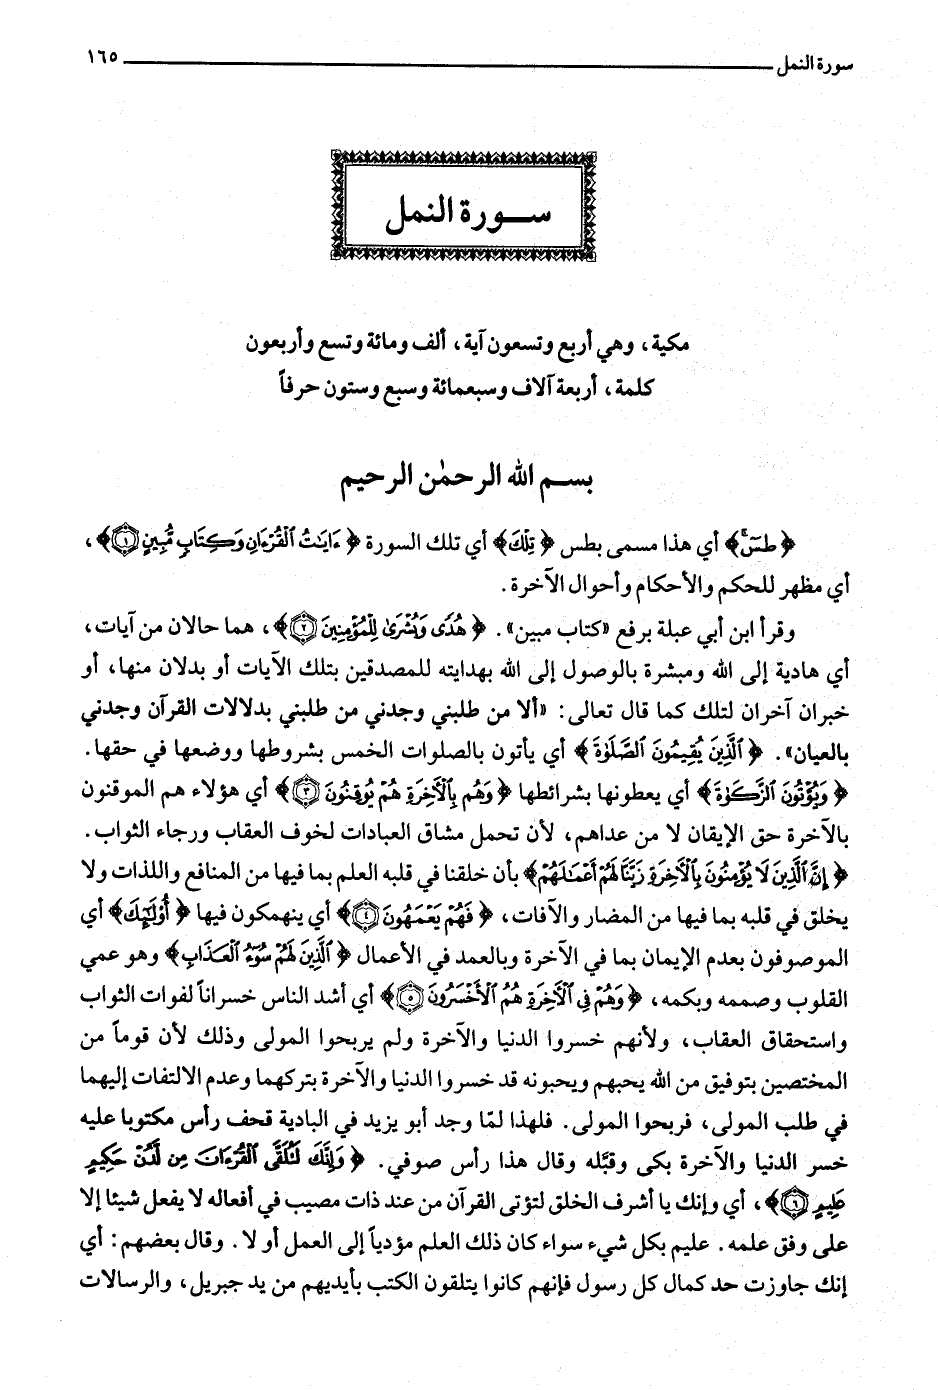 سورة النمل ١٦٥
ســورة النمل
مكية، وهي أربع وتسعون آية، ألف ومائة وتسع وأربعون
كلمة، أربعة آلاف وسبعمائة وسبع وستون حرفاً
بســم الله الرحمٰن الرحيم
﴿طسٓ﴾ أي هذا مسمى بطس ﴿تِلْكَ﴾ أي تلك السورة ﴿ءَايَٰتُ ٱلْقُرْءَانِ وَكِتَابٍ مُّبِينٍ ١﴾،
أي مظهر للحكم والأحكام وأحوال الآخرة.
وقرأ ابن أبي عبلة برفع «كتاب مبين». ﴿هُدًى وَبُشْرَىٰ لِلْمُؤْمِنِينَ ٢﴾، هما حالان من آيات،
أي هادية إلى الله ومبشرة بالوصول إلى الله بهدايته للمصدقين بتلك الآيات أو بدلان منها، أو
خبران آخران لتلك كما قال تعالى: «ألا من طلبني وجدني من طلبني بدلالات القرآن وجدني
بالعيان». ﴿ٱلَّذِينَ يُقِيمُونَ ٱلصَّلَوٰةَ﴾ أي يأتون بالصلوات الخمس بشروطها ووضعها في حقها.
﴿وَيُؤْتُونَ ٱلزَّكَوٰةَ﴾ أي يعطونها بشرائطها ﴿وَهُم بِٱلْأَخِرَةِ هُمْ يُوقِنُونَ ٣﴾ أي هؤلاء هم الموقنون
بالآخرة حق الإيقان لا من عداهم، لأن تحمل مشاق العبادات لخوف العقاب ورجاء الثواب.
﴿إِنَّ ٱلَّذِينَ لَا يُؤْمِنُونَ بِٱلْأَخِرَةِ زَيَّنَّا لَهُمْ أَعْمَٰلَهُمْ﴾ بأن خلقنا في قلبه العلم بما فيها من المنافع واللذات ولا
يخلق في قلبه بما فيها من المضار والآفات، ﴿فَهُمْ يَعْمَهُونَ ٤﴾ أي ينهمكون فيها ﴿أُوْلَٰٓئِكَ﴾ أي
الموصوفون بعدم الإيمان بما في الآخرة وبالعمد في الأعمال ﴿ٱلَّذِينَ لَهُمْ سُوٓءُ ٱلْعَذَابِ﴾ وهو عمي
القلوب وصممه وبكمه، ﴿وَهُمْ فِي ٱلْأَخِرَةِ هُمُ ٱلْأَخْسَرُونَ ٥﴾ أي أشد الناس خسراناً لفوات الثواب
واستحقاق العقاب، ولأنهم خسروا الدنيا والآخرة ولم يربحوا المولى وذلك لأن قوماً من
المختصين بتوفيق من الله يحبهم ويحبونه قد خسروا الدنيا والآخرة بتركهما وعدم الالتفات إليهما
في طلب المولى، فربحوا المولى. فلهذا لمّا وجد أبو يزيد في البادية قحف رأس مكتوبا عليه
خسر الدنيا والآخرة بكى وقبّله وقال هذا رأس صوفي. ﴿وَإِنَّكَ لَتُلَقَّى ٱلْقُرْءَانَ مِن لَّدُنْ حَكِيمٍ
عَلِيمٍ ٦﴾، أي وإنك يا أشرف الخلق لتؤتى القرآن من عند ذات مصيب في أفعاله لا يفعل شيئا إلا
على وفق علمه. عليم بكل شيء سواء كان ذلك العلم مؤدياً إلى العمل أو لا. وقال بعضهم: أي
إنك جاوزت حد كمال كل رسول فإنهم كانوا يتلقون الكتب بأيديهم من يد جبريل، والرسالات